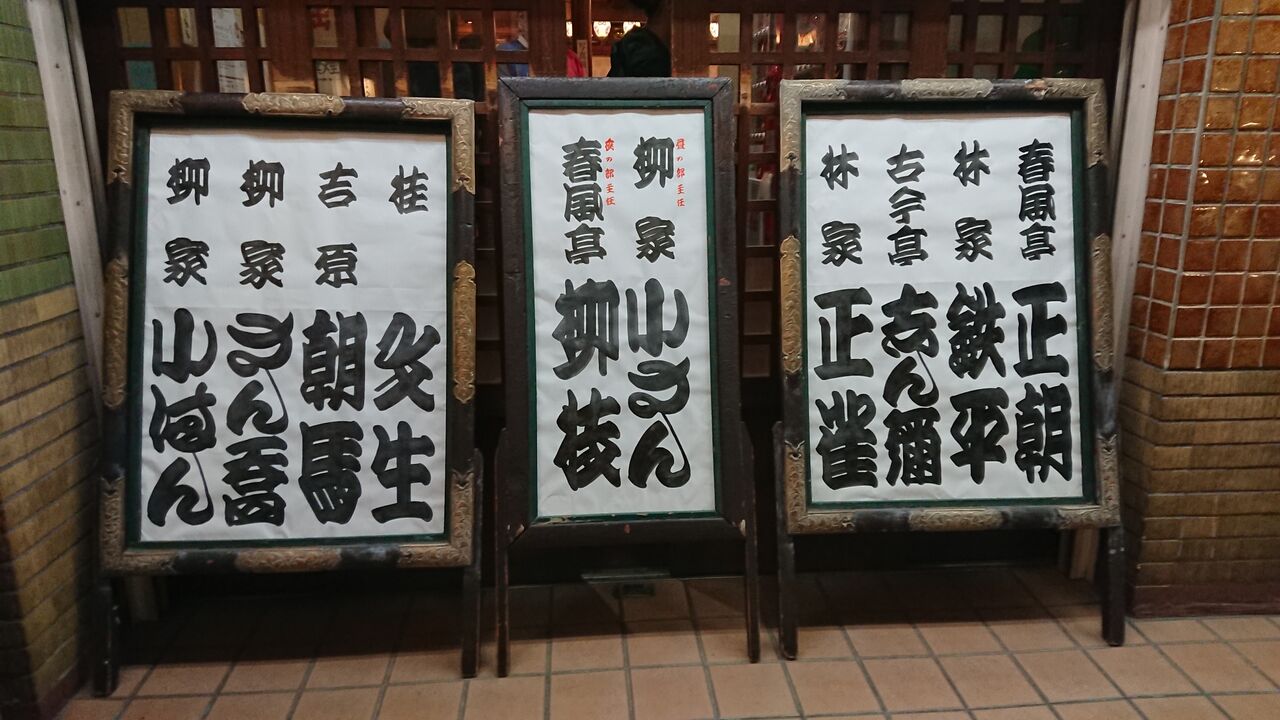 春風亭正朝
林家鉄平
古今亭志ん彌
林家正雀
昼の部主任
柳家小さん
夜の部主任
春風亭柳枝
桂文生
吉原朝馬
柳家さん喬
柳家小はん